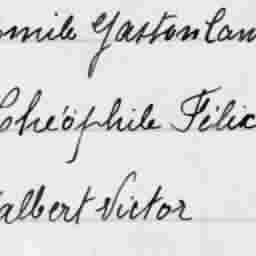 mile Gaston Cam
Théophile Félix
albert Victor